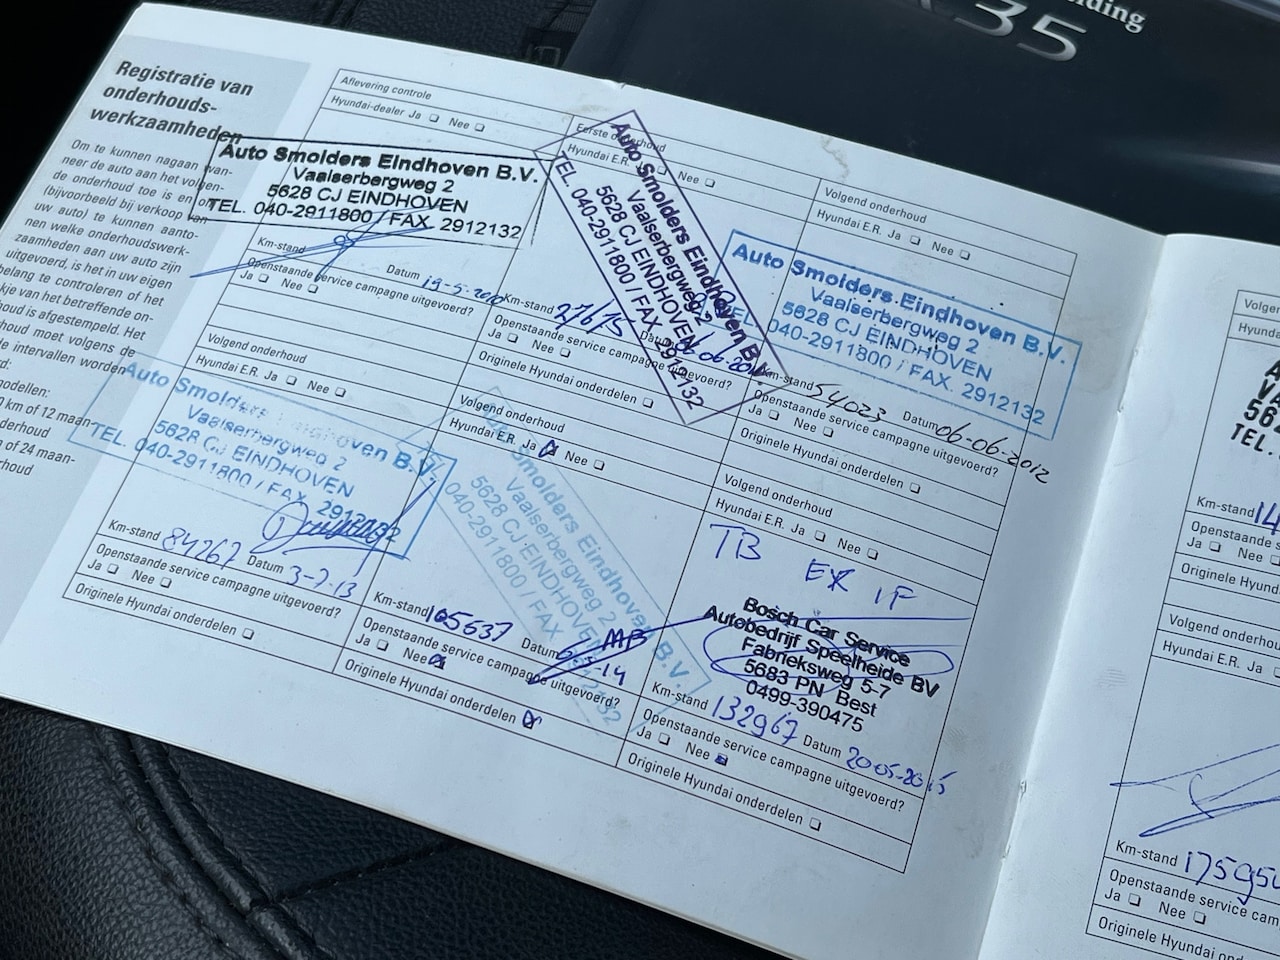 nding
35
Registratie van
onderhouds-
werkzaamheden
Om te kunnen nagaan wan-
neer de auto aan het volgen-
de onderhoud toe is en om
(bijvoorbeeld bij verkoop van
uw auto) te kunnen aanto-
nen welke onderhoudswerk-
zaamheden aan uw auto zijn
uitgevoerd, is het in uw eigen
belang te controleren of het
kje van het betreffende on-
houd is afgestempeld. Het
houd moet volgens de
intervallen worden
modellen:
km of 12 maan-
derhoud
of 24 maan-
houd
Aflevering controle
Hyundai-dealer Ja Nee
Auto Smolders Eindhoven B.V.
Vaalserbergweg 2
5628 CJ EINDHOVEN
TEL. 040-2911800 / FAX 2912132
Km-stand Datum 19-5-2010
Openstaande service campagne uitgevoerd?
Ja Nee
Eerste onderhoud
Hyundai E.R. Ja Nee
Auto Smolders Eindhoven B.V.
Vaalserbergweg 2
5628 CJ EINDHOVEN
TEL. 040-2911800 / FAX 2912132
Km-stand 27675 Datum
Openstaande service campagne uitgevoerd?
Ja Nee
Originele Hyundai onderdelen
Volgend onderhoud
Hyundai E.R. Ja Nee
Auto Smolders Eindhoven B.V.
Vaalserbergweg 2
5628 CJ EINDHOVEN
TEL. 040-2911800 / FAX. 2912132
Km-stand 54023 Datum 06-06-2012
Openstaande service campagne uitgevoerd?
Ja Nee
Originele Hyundai onderdelen
Volgend onderhoud
Hyundai E.R. Ja Nee
Auto Smolders Eindhoven B.V.
Vaalserbergweg 2
5628 CJ EINDHOVEN
TEL. 040-2911800 / FAX 2912132
Km-stand 84267 Datum 3-7-13
Openstaande service campagne uitgevoerd?
Ja Nee
Originele Hyundai onderdelen
Volgend onderhoud
Hyundai E.R. Ja Nee
Auto Smolders Eindhoven B.V.
Vaalserbergweg 2
5628 CJ EINDHOVEN
040-2911800 / FAX 2912132
MB
Km-stand 105637 Datum 6-5-14
Openstaande service campagne uitgevoerd?
Ja Nee
Originele Hyundai onderdelen
Volgend onderhoud
Hyundai E.R. Ja Nee
TB EX IF
Bosch Car Service
Autobedrijf Speelheide BV
Fabrieksweg 5-7
5683 PN Best
0499-390475
Km-stand 132967 Datum 20-05-2015
Openstaande service campagne uitgevoerd?
Ja Nee
Originele Hyundai onderdelen
Volgen
Hyunda
A
VA
562
TEL.
Km-stand 14
Openstaande s
Ja Nee
Originele Hyund
Volgend onderhou
Hyundai E.R. Ja
Km-stand 17595
Openstaande service cam
Ja Nee
Originele Hyundai onder